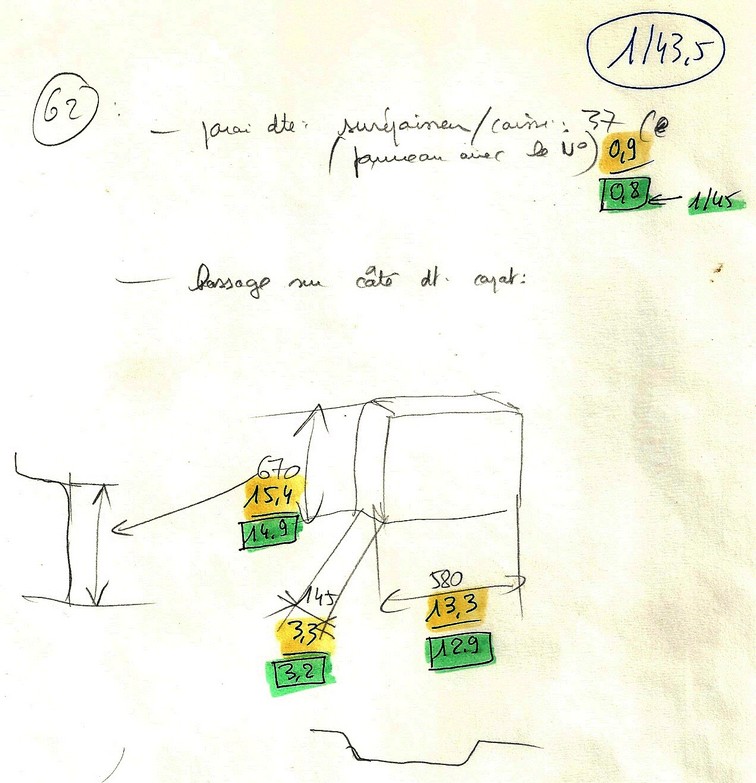 1/43,5
62 :
— paroi dte: surépaisseur/caisse: 37
(panneau avec le N°) 0,9
0,8 ← 1/45
— bossage sur côté dt. capot:
670
15,4
14.9
145
3,3
3,2
580
13,3
12.9